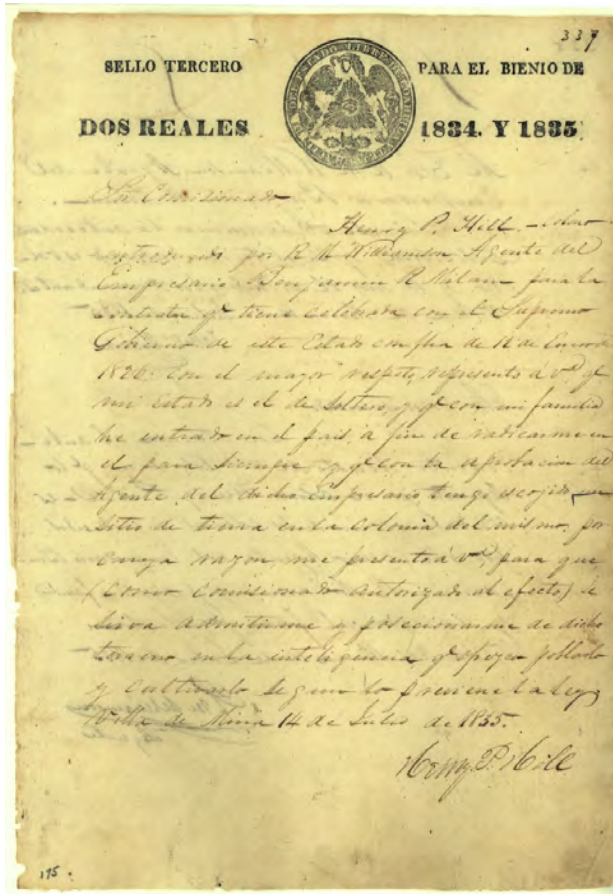 337
SELLO TERCERO PARA EL BIENIO DE
DOS REALES 1834. Y 1835
Sor Comisionado
Henry P. Hill – colono
introducido por R M Williamson, Agente del
Empresario Benjamin R Milam para la
contrata qe tiene celebrada con el Supremo
Gobierno de este Estado con fha de 12 de Enero de
1826. Con el mayor respeto, represento á vd qe
mi estado es el de soltero, y qe con mi familia
he entrado en el pais, a fin de radicarme en
el para siempre y qe con la aprobacion del
Agente del dicho Empresario tengo escojido un
sitio de tierra en la Colonia del mismo, por
cuya razon, me presento á vd, para que
(como Comisionado autorizado al efecto) se
sirva admitirme y posecionarme de dicho
terreno en la inteligencia qe poblarlo
y cultivarlo segun lo previene la ley
Villa de Mina 14 de Julio de 1835.
Henry P. Hill
195